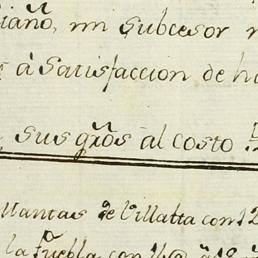 iano, mi Subcesor
à Satisfaccion de
sus grõs al costo
Mantas de Villalta con 12
la Puebla con